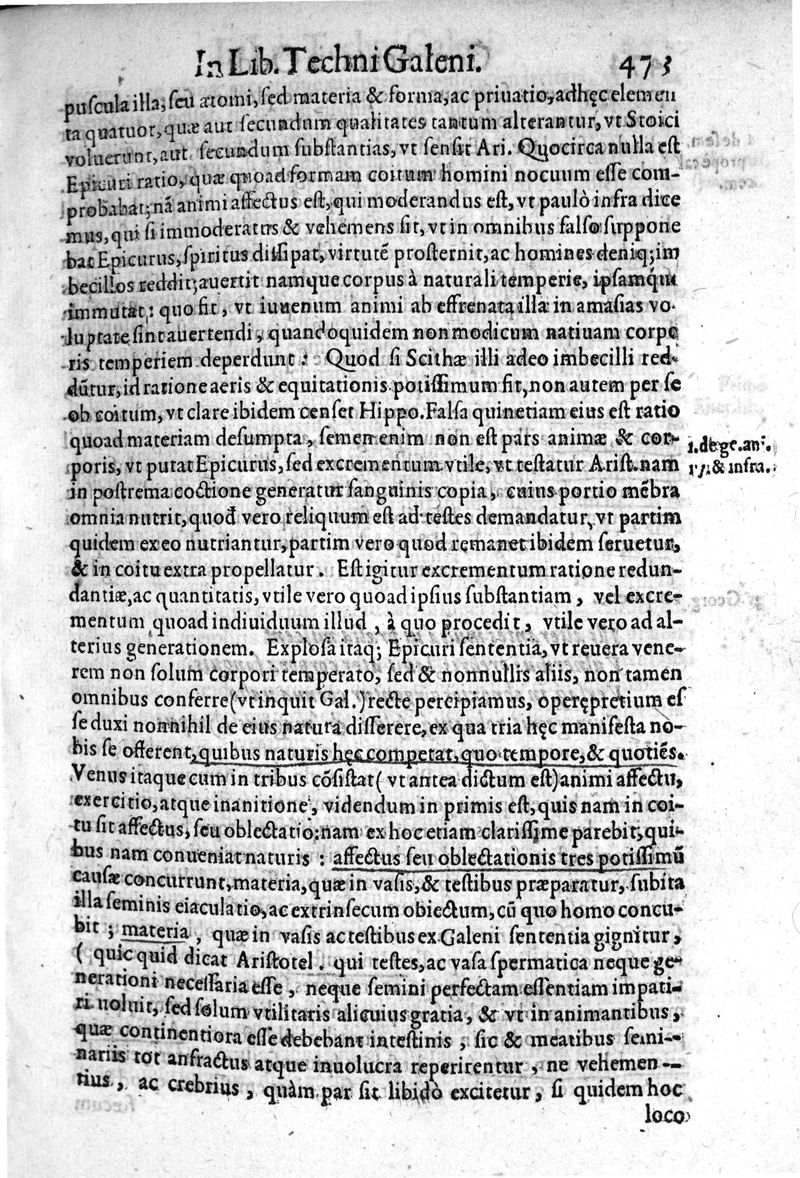 In Lib. Techni Galeni. 473
puscula illa; seu atomi, sed materia & forma, ac priuatio, adhęc elemen
ta quatuor, quæ aut secundum qualitates tantum alterantur, vt Stoici
voluerunt, aut secundum substantias, vt sensit Ari. Quocirca nulla est
Epicuri ratio, quæ quoad formam coitum homini nocuum esse com-
probabat; nã animi affectus est, qui moderandus est, vt paulò infra dice
mus, qui si immoderatus & vehemens sit, vt in omnibus falso suppone
bat Epicurus, spiritus dissipat, virtutẽ prosternit, ac homines deniq; im
becillos reddit; auertit namque corpus à naturali temperie, ipsamq́ui
immutat: quo fit, vt iuuenum animi ab effrenata illa in amasias vo-
luptate sint auertendi, quandoquidem non modicum natiuam corpo
ris temperiem deperdunt: Quod si Scithæ illi adeo imbecilli red-
dũtur, id ratione aeris & equitationis potissimum fit, non autem per se
ob coitum, vt clare ibidem censet Hippo. Falsa quinetiam eius est ratio
quoad materiam desumpta, semen enim non est pars animæ & cor-
poris, vt putat Epicurus, sed excrementum vtile, vt testatur Arist. nam
in postrema coctione generatur sanguinis copia, cuius portio mẽbra
omnia nutrit, quod vero reliquum est ad testes demandatur, vt partim
quidem ex eo nutriantur, partim vero quod remanet ibidem seruetur,
& in coitu extra propellatur. Est igitur excrementum ratione redun-
dantiæ, ac quantitatis, vtile vero quoad ipsius substantiam, vel excre-
mentum quoad indiuiduum illud, à quo procedit, vtile vero ad al-
terius generationem. Explosa itaq; Epicuri sententia, vt reuera vene-
rem non solum corpori temperato, sed & nonnullis aliis, non tamen
omnibus conferre (vt inquit Gal.) recte percipiamus, operępretium es
se duxi nonnihil de eius natura disserere, ex qua tria hęc manifesta no-
bis se offerent, quibus naturis hęc competat, quo tempore, & quotiẽs.
Venus itaque cum in tribus cõsistat (vt antea dictum est) animi affectu,
exercitio, atque inanitione, videndum in primis est, quis nam in coi-
tu sit affectus, seu oblectatio; nam ex hoc etiam clarissime parebit, qui-
bus nam conueniat naturis: affectus seu oblectationis tres potissimũ
causæ concurrunt, materia, quæ in vasis, & testibus præparatur, subita
illa seminis eiaculatio, ac extrinsecum obiectum, cũ quo homo concu-
bit; materia, quæ in vasis ac testibus ex Galeni sententia gignitur,
( quic quid dicat Aristotel. qui testes, ac vasa spermatica neque ge-
nerationi necessaria esse, neque semini perfectam essentiam impati-
ri uoluit, sed solum vtilitatis alicuius gratia, & vt in animantibus,
quæ continentiora esse debebant intestinis, sic & meatibus semi-
nariis tot anfractus atque inuolucra reperirentur, ne vehemen-
tius, ac crebrius, quàm par sit libidò excitetur, si quidem hoc
loco
1. de ge. an.
& infra.